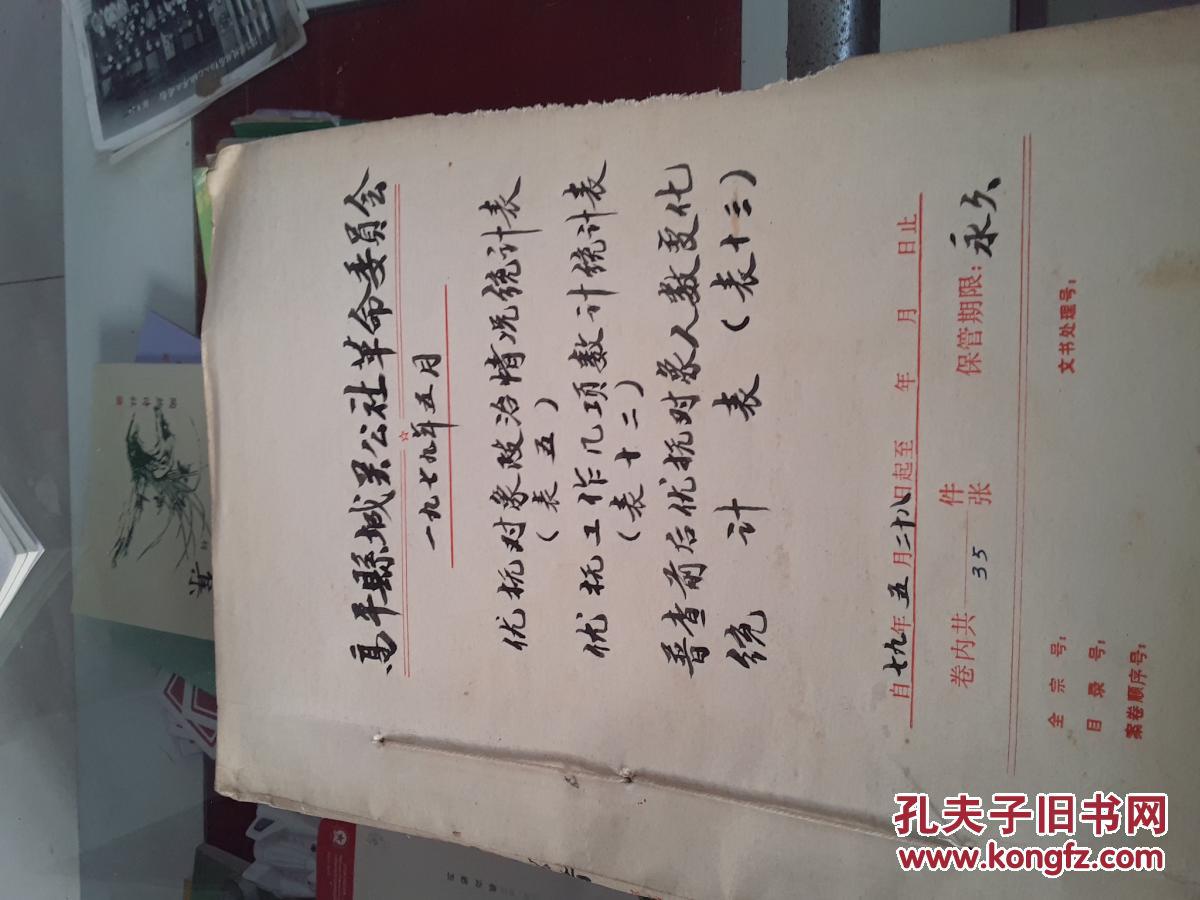 高平縣城关公社革命委員会
一九七九年五月
优抚对象政治情况统计表
（表五）
优抚工作几项数计统计表
（表十二）
普查前后优抚对象人数变化
统计表（表十三）
自七九年五月二十八日起至 年 月 日止
卷内共 35 件张 保管期限：永久
文书处理号：
全宗号：
目录号：
案卷顺序号：
孔夫子旧书网
www.kongfz.com